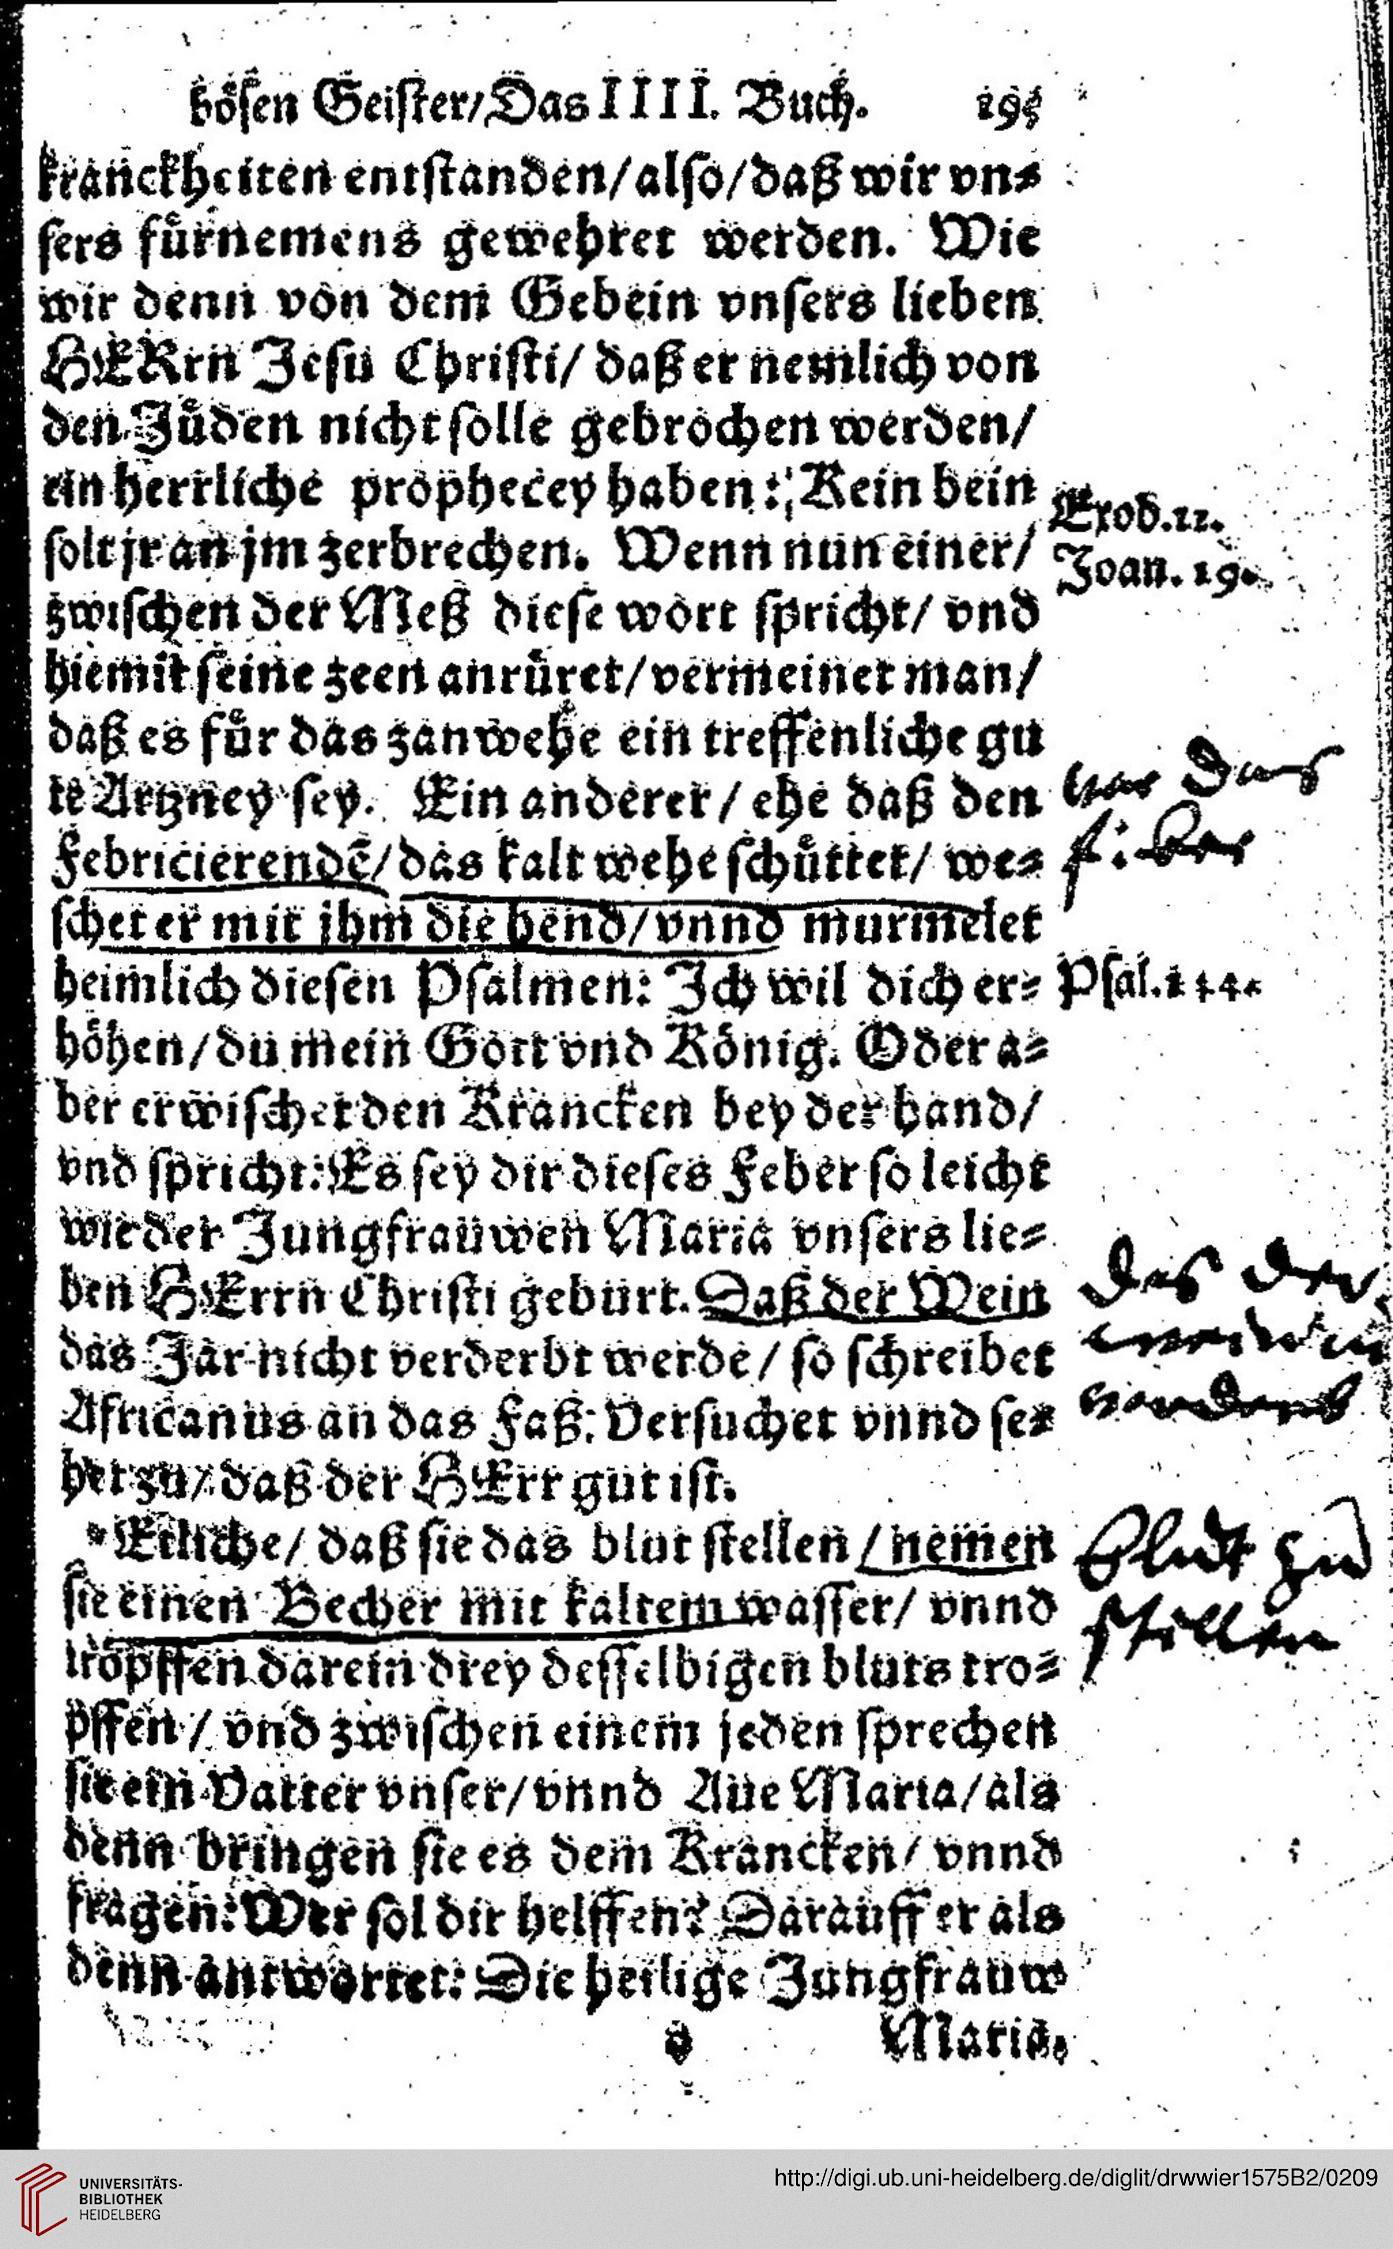 bösen Geister/Das IIII. Buch. 195
kranckheiten entstanden/also/daß wir vn⸗
sers fürnemens gewehret werden. Wie
wir denn von dem Gebein vnsers lieben
HERrn Jesu Christi/ daß er nemlich von
den Jůden nicht solle gebrochen werden/
ein herrliche prophecey haben: Kein bein
solt jr an jm zerbrechen. Wenn nun einer/
Exod. 12.
Joan. 19.
zwischen der Meß diese wort spricht/ vnd
hiemit seine zeen anrůret/vermeinet man/
daß es fůr das zanwehe ein treffenliche gu
te Artzney sey. Ein anderer/ ehe daß den
Febricierendẽ/das kalt wehe schůttet/ we⸗
vor das
fiber
schet er mit ihm die hend/vnnd murmelet
heimlich diesen Psalmen: Ich wil dich er⸗
Psal. 144.
höhen/du mein Gott vnd König. Oder a⸗
ber erwischet den Krancken bey der hand/
vnd spricht: Es sey dir dieses Feber so leicht
wie der Jungfrauwen Maria vnsers lie⸗
ben HErrn Christi geburt. Daß der Wein
das Jar nicht verderbt werde/ so schreibet
Africanus an das Faß: Versuchet vnnd se⸗
het zu/ daß der HErr gut ist.
Das der
Etliche/ daß sie das blut stellen/nemen
sie einen Becher mit kaltem wasser/ vnnd
Blut zu
stillen
tröpffen darein drey desselbigen bluts tro⸗
pffen/ vnd zwischen einem jeden sprechen
sie ein Vatter vnser/vnnd Aue Maria/als
denn bringen sie es dem Krancken/ vnnd
fragen: Wer sol dir helffen? Darauff er als
denn antwortet: Die heilige Jungfrauw
Maria.
UNIVERSITÄTS-
BIBLIOTHEK
HEIDELBERG
http://digi.ub.uni-heidelberg.de/diglit/drwwier1575B2/0209